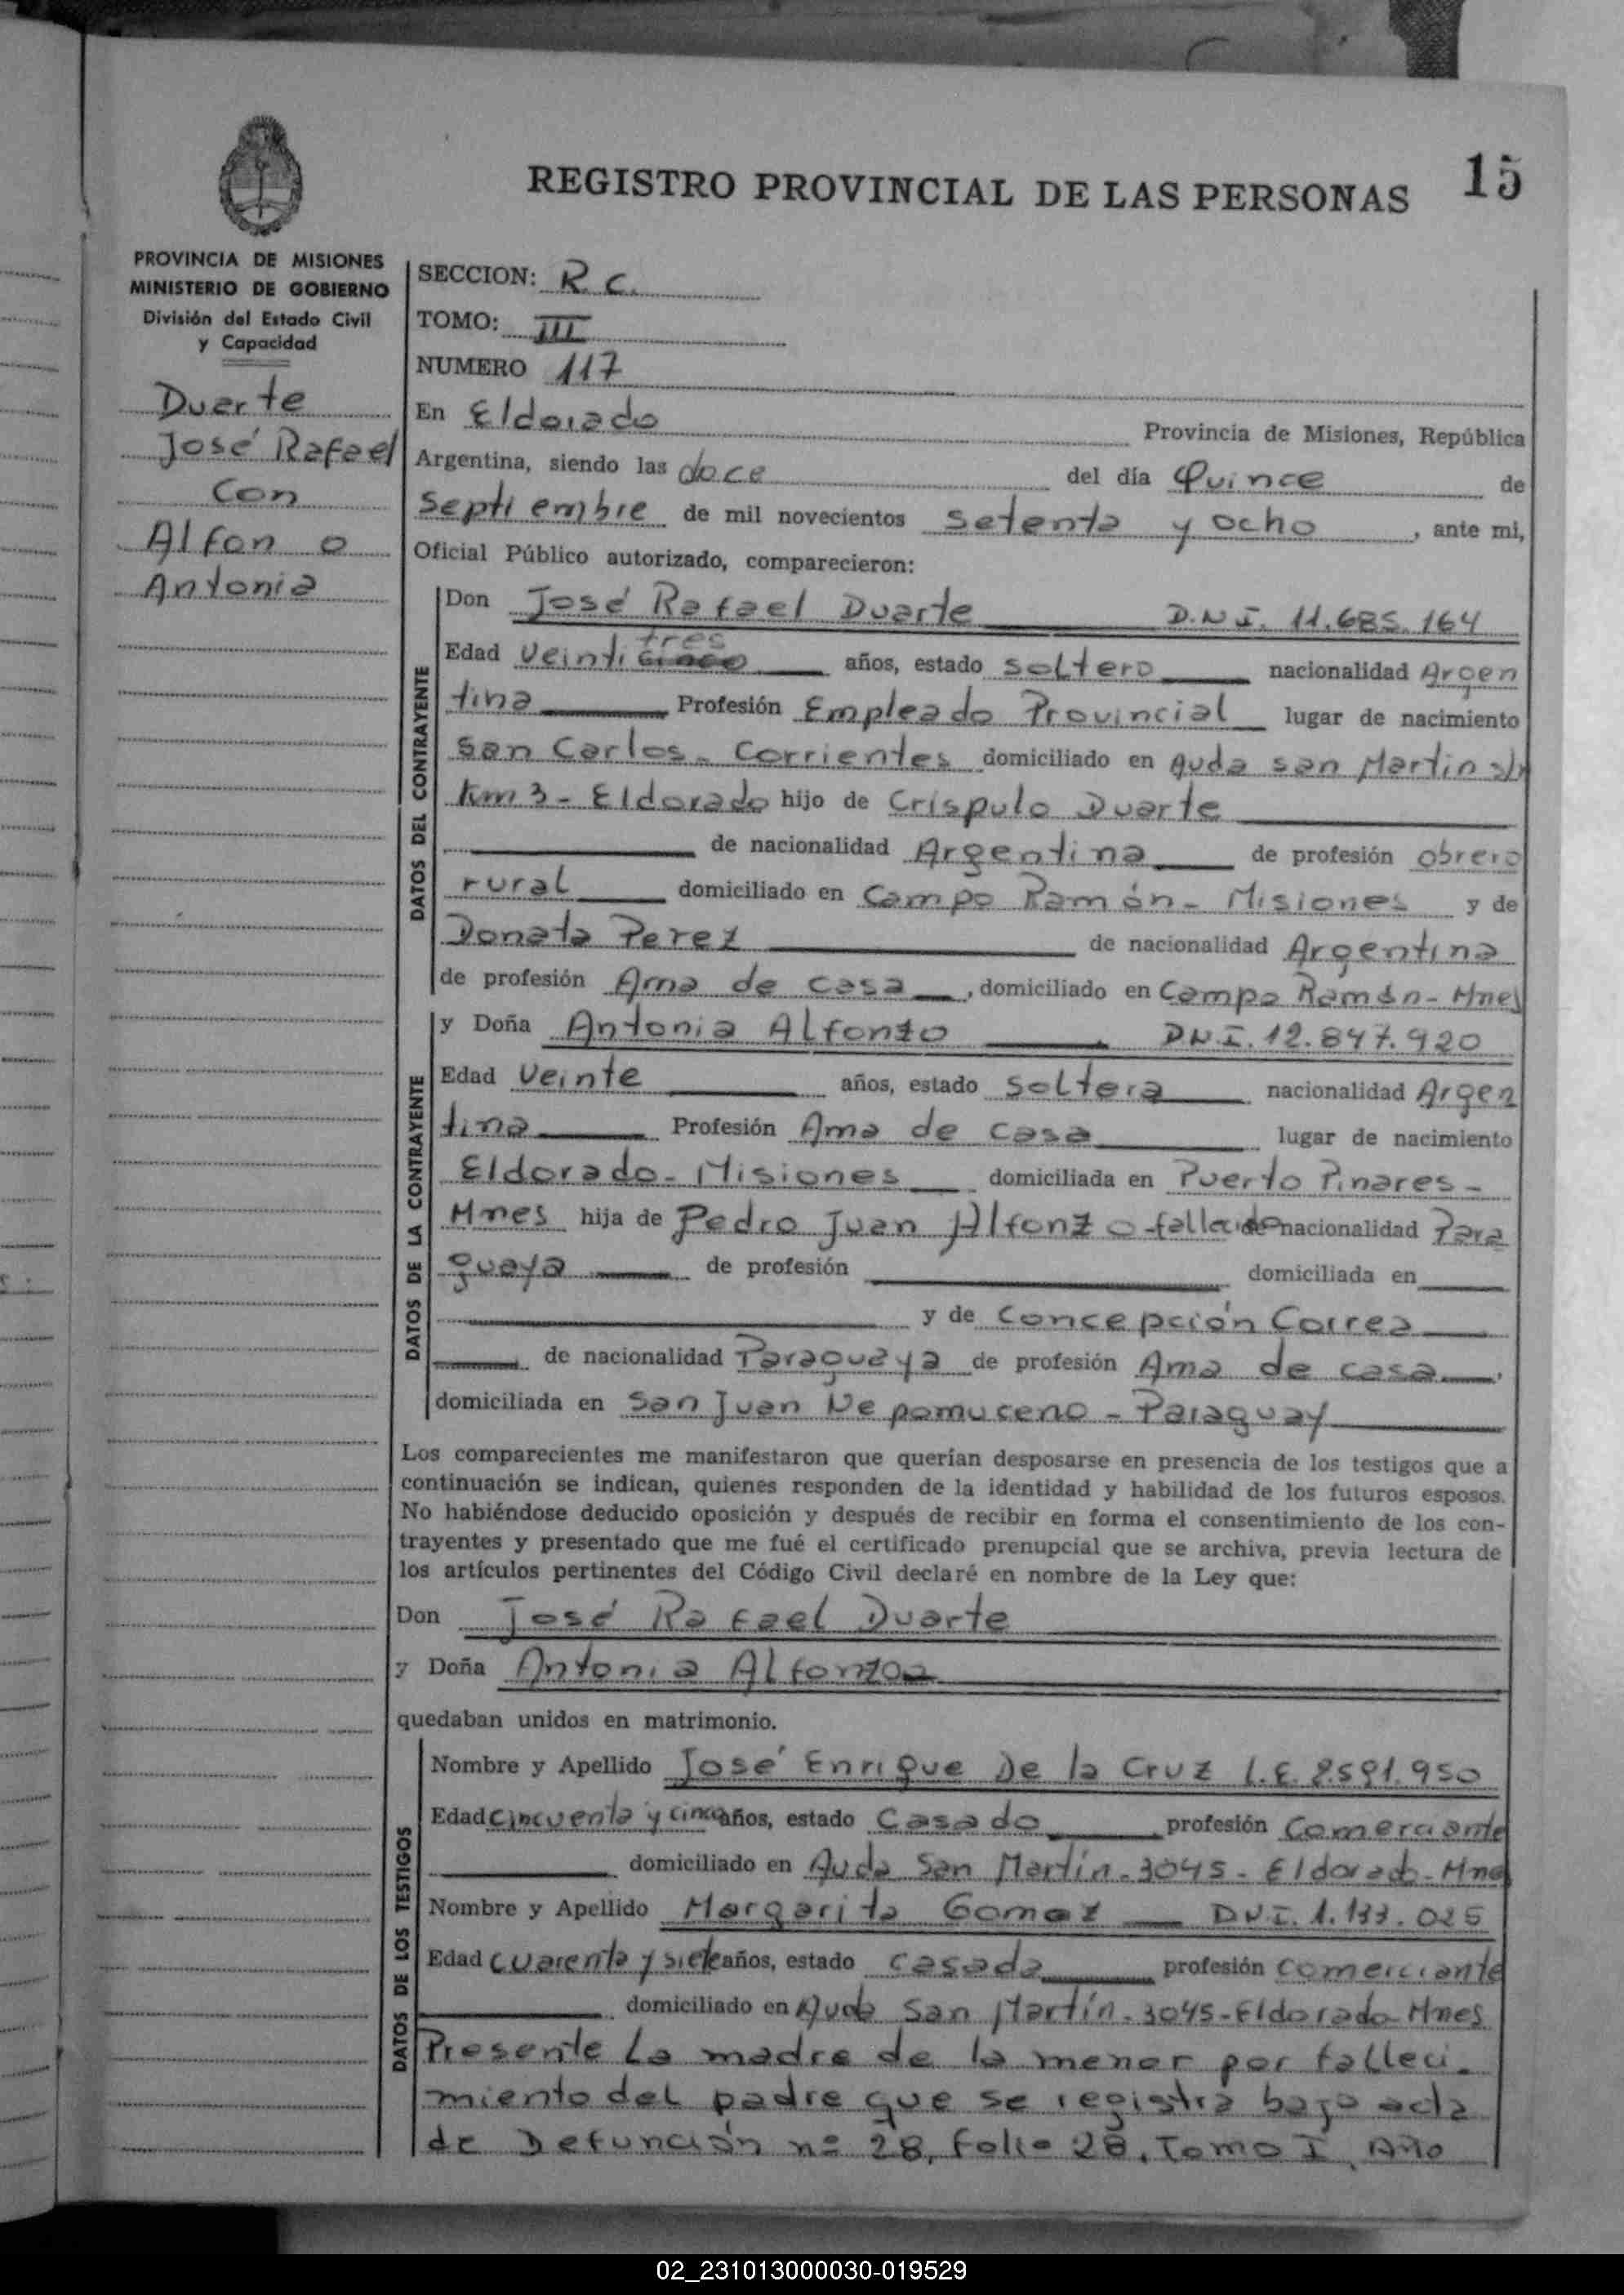 REGISTRO PROVINCIAL DE LAS PERSONAS 15
PROVINCIA DE MISIONES
MINISTERIO DE GOBIERNO
División del Estado Civil
y Capacidad
Duarte
José Rafael
Con
Alfon o
Antonia
SECCION: R. C.
TOMO: III
NUMERO 117
En Eldorado Provincia de Misiones, República
Argentina, siendo las doce del día Quince de
Septiembre de mil novecientos setenta y ocho, ante mi,
Oficial Público autorizado, comparecieron:
DATOS DEL CONTRAYENTE
Don José Rafael Duarte D.N.I. 11.685.164
tres
Edad veinti cinco años, estado soltero nacionalidad Argen
tina Profesión Empleado Provincial lugar de nacimiento
San Carlos - Corrientes domiciliado en Avda San Martin s/n
Km 3 - Eldorado hijo de Críspulo Duarte
de nacionalidad Argentina de profesión obrero
rural domiciliado en Campo Ramón - Misiones y de
Donata Perez de nacionalidad Argentina
de profesión Ama de casa, domiciliado en Campo Ramón - Mnes
DATOS DE LA CONTRAYENTE
y Doña Antonia Alfonzo D.N.I. 12.847.920
Edad veinte años, estado soltera nacionalidad Argen
tina Profesión Ama de casa lugar de nacimiento
Eldorado - Misiones domiciliada en Puerto Pinares -
Mnes hija de Pedro Juan Alfonzo - fallecido nacionalidad Para
guaya de profesión domiciliada en
y de Concepción Correa
de nacionalidad Paraguaya de profesión Ama de casa,
domiciliada en San Juan Nepomuceno - Paraguay
Los comparecientes me manifestaron que querían desposarse en presencia de los testigos que a
continuación se indican, quienes responden de la identidad y habilidad de los futuros esposos.
No habiéndose deducido oposición y después de recibir en forma el consentimiento de los con-
trayentes y presentado que me fué el certificado prenupcial que se archiva, previa lectura de
los artículos pertinentes del Código Civil declaré en nombre de la Ley que:
Don José Rafael Duarte
y Doña Antonia Alfonzo
quedaban unidos en matrimonio.
DATOS DE LOS TESTIGOS
Nombre y Apellido José Enrique De la Cruz L.E. 2.591.950
Edad cincuenta y cinco años, estado Casado profesión Comerciante
domiciliado en Avda San Martín - 3045 - Eldorado - Mnes
Nombre y Apellido Margarita Gomez D.N.I. 1.133.025
Edad cuarenta y siete años, estado casada profesión comerciante
domiciliado en Avda San Martín - 3045 - Eldorado - Mnes
Presente La madre de la menor por falleci-
miento del padre que se registra bajo acta
de Defunción nº 28, folio 28, Tomo I, Año
02_231013000030-019529